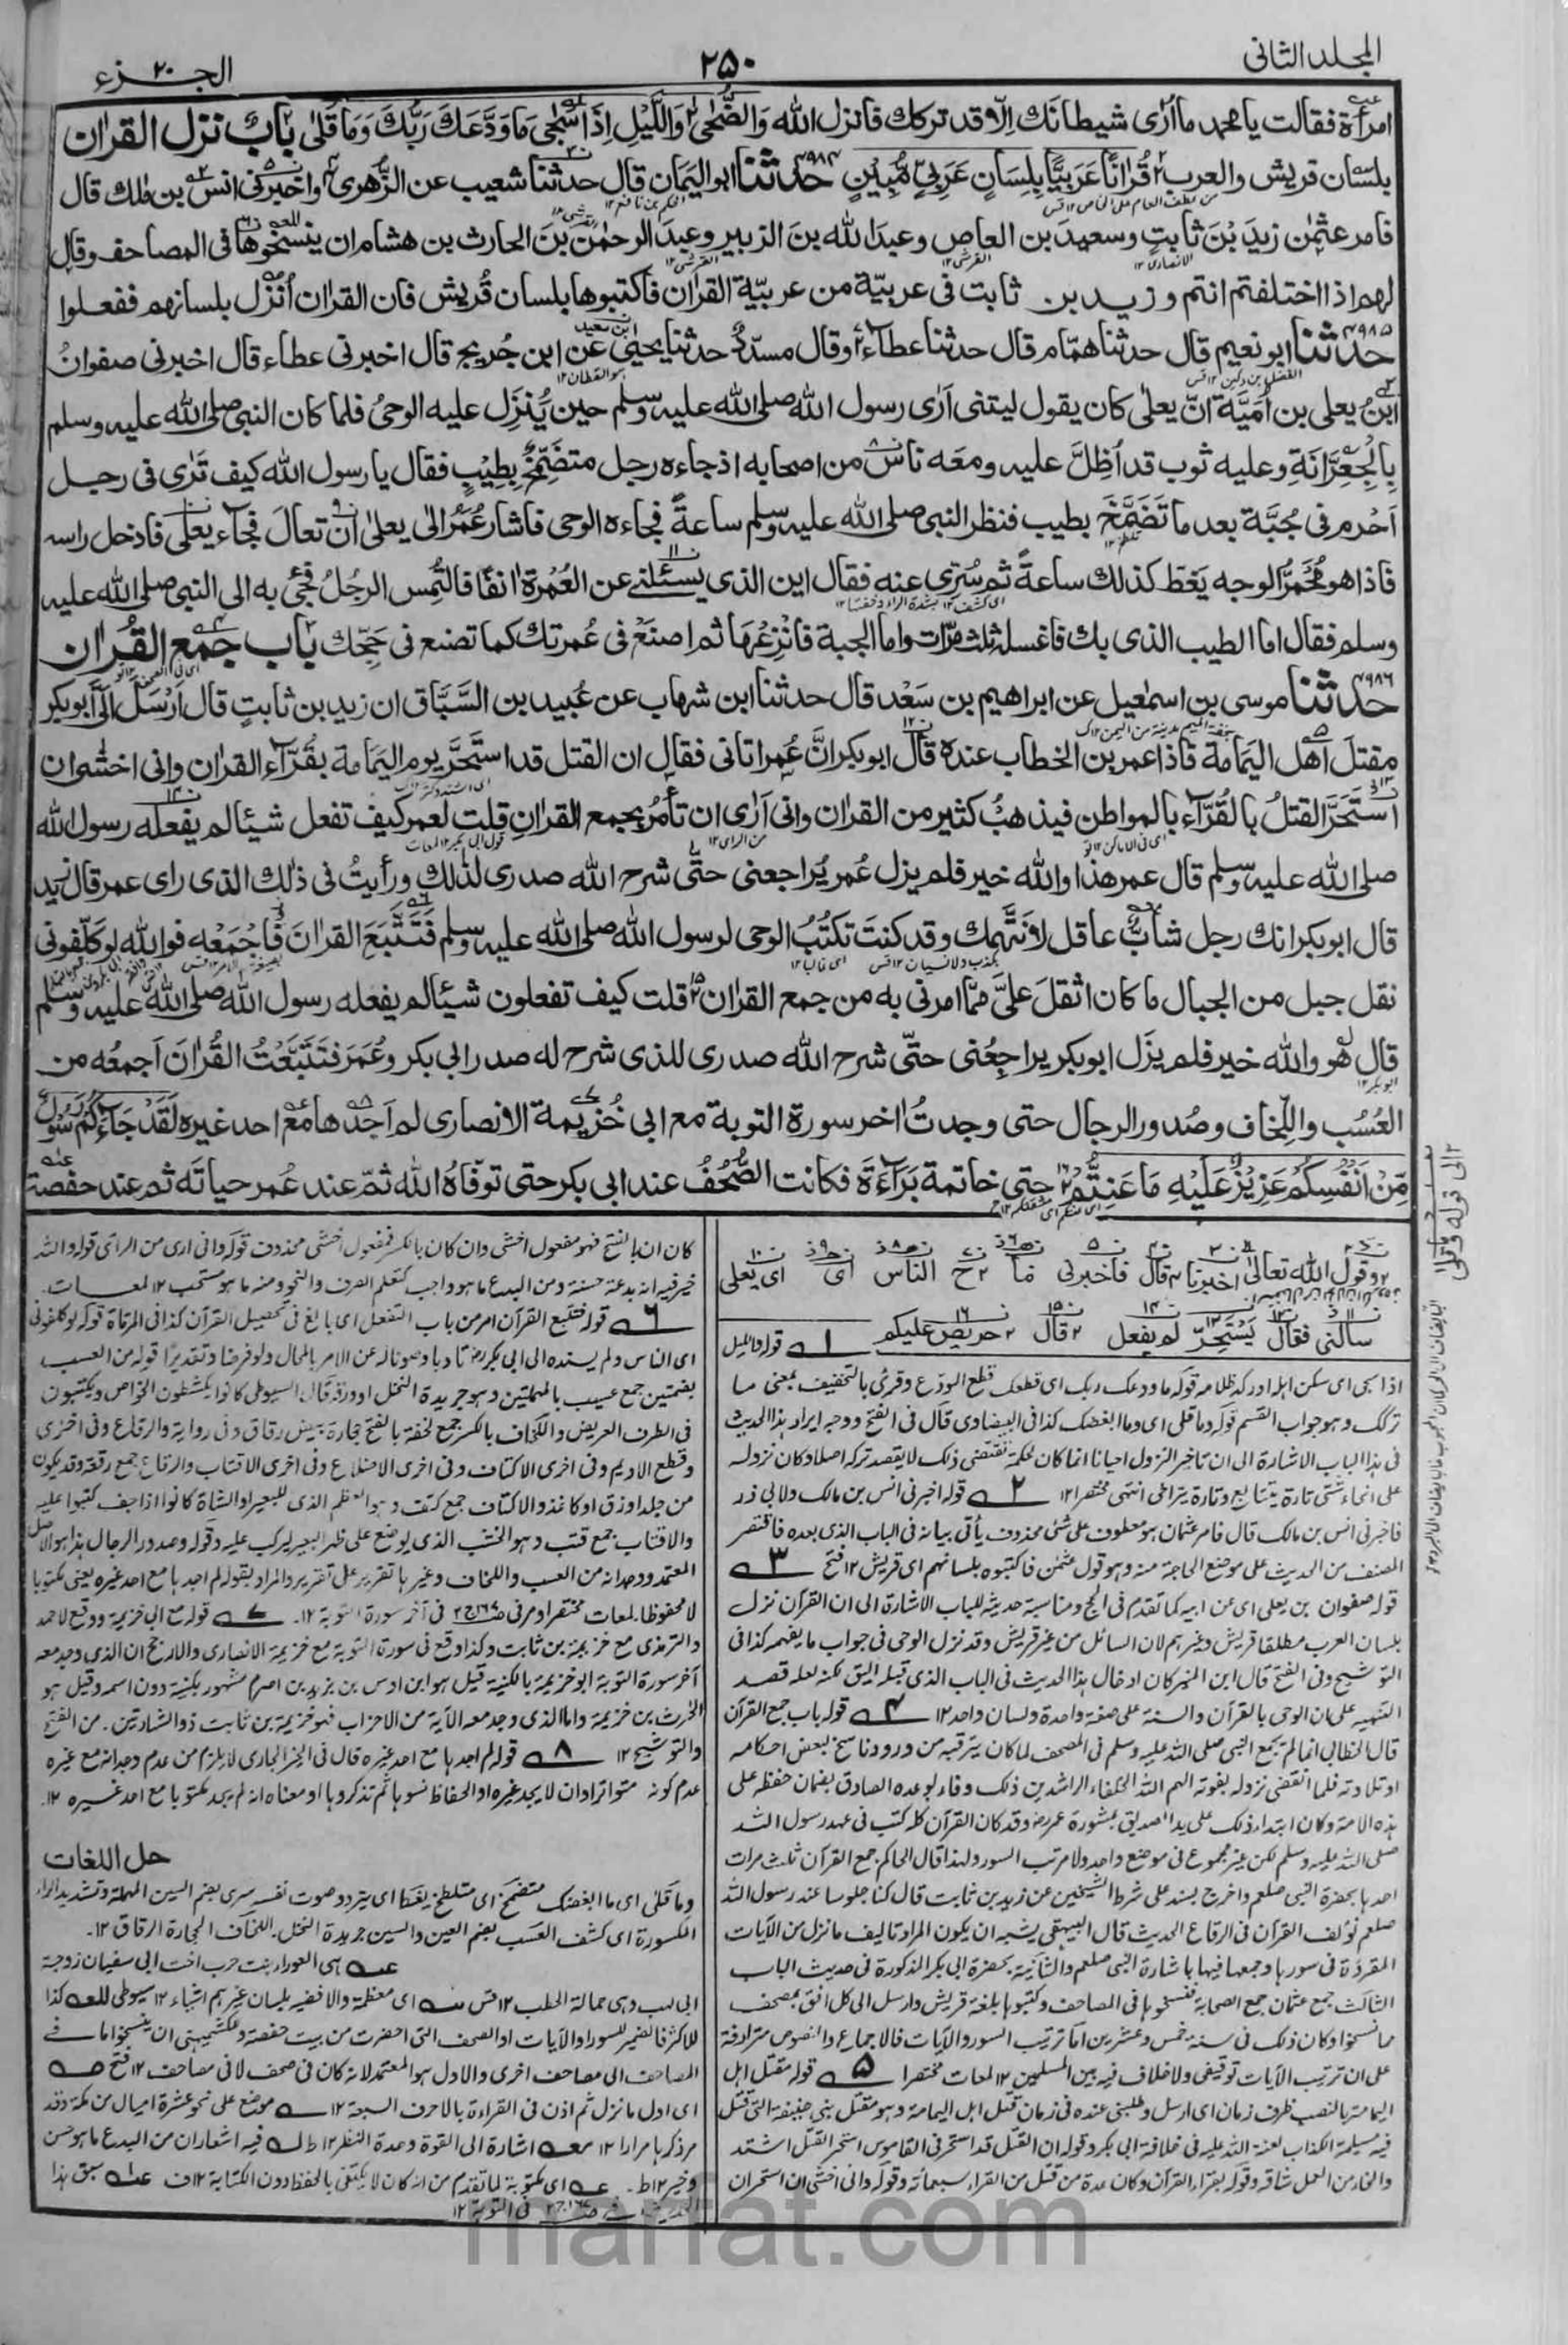 المجلد الثانى
٢٥٠
الجزء ٢٠
امرأة فقالت يا محمد ما اَرٰى شيطانَك اِلّا قد تركك فانزل الله وَالضُّحٰى وَاللَّيْلِ اِذَا سَجٰى مَا وَدَّعَكَ رَبُّكَ وَمَا قَلٰى بابٌ نزل القراٰن
بلسان قريش والعرب قُرْاٰنًا عَرَبِيًّا بِلِسَانٍ عَرَبِيٍّ مُّبِيْنٍ ٤٩٨٤ حدثنا ابو اليَمان قال حدثنا شعيب عن الزُّهرى واخبرنى انس بن مٰلك قال
فامر عثمٰن زيدَ بْنَ ثابتٍ وسعيدَ بن العاصِ وعبدَ الله بنَ الزبير وعبدَ الرحمٰن بنَ الحارث بن هشام ان ينسخوها فى المصاحف وقال
لهم اذا اختلفتم انتم وزيد بن ثابت فى عربيّة من عربيّة القراٰن فاكتبوها بلسان قُريش فان القراٰن اُنْزل بلسانهم ففعلوا
٤٩٨٥ حدثنا ابو نعيم قال حدثنا همّام قال حدثنا عطاء وقال مسدّد حدثنا يحيىٰ عن ابن جُريج قال اخبرنى عطاء قال اخبرنى صفوانُ
ابنُ يعلى بن اُمَيَّة انّ يعلٰى كان يقول ليتنى اَرٰى رسول الله صلى الله عليه وسلم حين يُنْزَل عليه الوحىُ فلما كان النبى صلى الله عليه وسلم
بِالْجِعِرَّانَةِ وعليه ثوب قد اُظِلَّ عليه ومعَه ناسٌ من اصحابه اذ جاءه رجل متضَمِّخٌ بِطِيْبٍ فقال يا رسول الله كيف تَرٰى فى رجل
اَحْرم فى جُبَّة بعد ما تَضَمَّخَ بطيب فنظر النبى صلى الله عليه وسلم ساعةً فجاءه الوحى فاشار عُمَرُ الٰى يعلىٰ اَن تعالَ فجاء يعلٰى فادخل راسه
فاذا هو مُحْمَرُّ الوجه يَغِطّ كذلك ساعةً ثم سُرِّى عنه فقال اين الذى يسئلنى عن العُمْرة اٰنفًا فالتُمِس الرجلُ فجِئ به الى النبى صلى الله عليه
وسلم فقال اما الطيب الذى بك فاغسله ثلٰث مرّات واما الجبة فانْزِعْهَا ثم اصنَعْ فى عُمرتك كما تصنع فى حَجّك باب جَمْعِ القُراٰن
٤٩٨٦ حدثنا موسى بن اسمٰعيل عن ابراهيم بن سَعْد قال حدثنا ابن شهاب عن عُبيد بن السَّبَّاق ان زيد بن ثابتٍ قال اَرْسَلَ اِلَىَّ ابوبكر
مقتلَ اَهْل اليَمَامة فاذا عمر بن الخطاب عنده قال ابوبكر انَّ عُمر اتانى فقال ان القتل قد استَحَرَّ يوم اليَمَامة بقُرَّاء القراٰن وانى اخشٰى ان
استَحَرَّ القتلُ بالقُرَّاء بالمواطن فيذهبُ كثير من القراٰن وانى اَرٰى ان تأمُرَ بجمع القراٰنِ قلت لعمر كيف تفعل شيئا لم يفعله رسول الله
صلى الله عليه وسلم قال عمر هذا والله خير فلم يزل عُمر يُراجعنى حتّى شرح الله صدرى لذٰلك ورأيتُ فى ذٰلك الذى راى عمر قال زيد
قال ابوبكر انك رجل شابٌّ عاقل لا نَتَّهِمُك وقد كنتَ تكتُبُ الوحى لرسول الله صلى الله عليه وسلم فَتَتَبَّعِ القراٰنَ فَاجْمَعْه فوالله لو كلّفونى
نقل جبل من الجبال ما كان اثقلَ علىَّ ممّا امرنى به من جمع القراٰن قلت كيف تفعلون شيئا لم يفعله رسول الله صلى الله عليه وسلم
قال هو والله خير فلم يزَل ابوبكر يراجِعُنى حتّى شرح الله صدرى للذى شرح له صدر ابى بكر وعُمَرَ فتَتَبَّعْتُ القُرْاٰنَ اَجمعُه من
العُسُب واللِّخاف وصُدور الرجال حتى وجدتُ اٰخر سورة التوبة مع ابى خُزَيمة الانصارى لم اَجدْها مع احد غيره لَقَدْ جَاءَكُمْ رَسُوْلٌ
مِّنْ اَنْفُسِكُمْ عَزِيْزٌ عَلَيْهِ مَا عَنِتُّمْ حتى خاتمة بَرَاءَةَ فكانت الصُّحُفُ عند ابى بكر حتى توفّاهُ الله ثمّ عند عُمر حياتَه ثم عند حفصة
وقول الله تعالٰى اخبرنا قال فاخبرنى ما ح الناس اى اى يعلى
سألنى فقال يَسْتَحِرَّ لم يفعل قال حريص عليكم
١ قوله والليل
اذا سجى اى سكن اهله او ركد ظلامه قوله ما ودعك ربك اى قطعك قطع المودع وقرئ بالتخفيف بمعنى ما
تركك وهو جواب القسم قوله وما قلى اى وما ابغضك كذا فى البيضاوى قال فى الفتح ووجه ايراد هذا الحديث
فى هذا الباب الاشارة الى ان تاخير النزول احيانا انما كان لحكمة تقتضى ذلك لا لقصد تركه اصلا وكان نزوله
على انحاء شتى تارة يتتابع وتارة يتراخى انتهى مختصرا ١٢ ٢ قوله اخبرنى انس بن مالك ولابى ذر
فاخبرنى انس بن مالك قال فامر عثمان هو معطوف على شئ محذوف يأتى بيانه فى الباب الذى بعده فاقتصر
المصنف من الحديث على موضع الحاجة منه وهو قول عثمٰن فاكتبوه بلسانهم اى قريش ١٢ فتح ٣
قوله صفوان بن يعلى اى عن ابيه كما تقدم فى الحج ومناسبة حديثه للباب الاشارة الى ان القرآن نزل
بلسان العرب مطلقا قريش وغيرهم لان السائل من غير قريش وقد نزل الوحى فى جواب ما يفهمه كذا فى
التوشيح وفى الفتح قال ابن المنير كان ادخال هذا الحديث فى الباب الذى قبله اليق لكنه لعله قصد
التنبيه على ان الوحى بالقرآن والسنة على صفة واحدة ولسان واحد ١٢ ٤ قوله باب جمع القرآن
قال الخطابى انما لم يجمع النبى صلى الله عليه وسلم فى المصحف لما كان يترقبه من ورود ناسخ لبعض احكامه
او تلاوته فلما انقضى نزوله بفوته الهم الله الخلفاء الراشدين ذلك وفاء لوعده الصادق بضمان حفظه على
هذه الامة وكان ابتداء ذلك على يد الصديق بمشورة عمر رض وقد كان القرآن كله كتب فى عهد رسول الله
صلى الله عليه وسلم لكن غير مجموع فى موضع واحد ولا مرتب السور ولهذا قال الحاكم جمع القرآن ثلث مرات
احدها بحضرة النبى صلعم واخرج بسند على شرط الشيخين عن زيد بن ثابت قال كنا جلوسا عند رسول الله
صلعم نؤلف القرآن فى الرقاع الحديث قال البيهقى يشبه ان يكون المراد تاليف ما نزل من الآيات
المفرقة فى سورها وجمعها فيها باشارة النبى صلعم والثانية بحضرة ابى بكر المذكورة فى حديث الباب
الثالث جمع عثمان جمع الصحابة فنسخوها فى المصاحف وكتبوها بلغة قريش وارسل الى كل افق بمصحف
مما نسخوا وكان ذلك فى سنة خمس وعشرين اما ترتيب السور والآيات فالاجماع والنصوص مترادفة
على ان ترتيب الآيات توقيفى ولا خلاف فيه بين المسلمين ١٢ لمعات مختصرا ٥ قوله مقتل اهل
اليمامة بالنصب ظرف زمان اى ارسل وطلبنى عنده فى زمان قتل اهل اليمامة وهو مقتل بنى حنيفة التى قتل
فيه مسيلمة الكذاب لعنة الله عليه فى خلافة ابى بكر وقوله ان القتل قد استحر فى القاموس استحر القتل اشتد
والحار من العمل شاقه وقوله بقراء القرآن وكان عدة من قتل من القراء سبعمائة وقوله وانى اخشى ان استحر ان
كان ان بالفتح فهو مفعول اخشى وان كان بالكسر فمفعول اخشى محذوف قوله وانى ارى من الراى قوله والله
خير فيه انه بدعة حسنة ومن البدع ما هو واجب كتعلم الصرف والنحو ومنه ما هو مستحب ١٢ لمعات.
٦ قوله فتتبع القرآن امر من باب التفعل اى بالغ فى تحصيل القرآن كذا فى المرقاة قوله لو كلفونى
اى الناس ولم يسنده الى ابى بكر رض تادبا وصونا له عن الامر بالمحال ولو فرضا وتقديرًا قوله من العسب
بضمتين جمع عسيب بالمهملتين وهو جريدة النخل او ورقه قال السيوطى كانوا يكشطون الخوص ويكتبون
فى الطرف العريض واللخاف بالكسر جمع لخفة بالفتح حجارة بيض رقاق وفى رواية والرقاع وفى اخرى
وقطع الاديم وفى اخرى الاكتاف وفى اخرى الاضلاع وفى اخرى الاقتاب والرقاع جمع رقعة وقد يكون
من جلد او رق او كاغذ والاكتاف جمع كتف وهو العظم الذى للبعير او الشاة كانوا اذا جف كتبوا عليه
والاقتاب جمع قتب وهو الخشب الذى يوضع على ظهر البعير ليركب عليه وقوله وصدور الرجال هذا هو الاصل
المعتمد ووجدانه من العسب واللخاف وغيرها تقرير على تقرير والمراد بقوله لم اجدها مع احد غيره يعنى مكتوبا
لا محفوظا. لمعات مختصرا ومر فى آخر سورة التوبة ١٢. ٧ قوله مع ابى خزيمة ووقع لاحمد
والترمذى مع خزيمة بن ثابت وكذا وقع فى سورة التوبة مع خزيمة الانصارى والارجح ان الذى وجد معه
آخر سورة التوبة ابو خزيمة بالكنية قيل هو ابن اوس بن يزيد بن اصرم مشهور بكنيته دون اسمه وقيل هو
الحرث بن خزيمة واما الذى وجد معه الآية من الاحزاب فهو خزيمة بن ثابت ذو الشهادتين. من الفتح
والتوشيح ١٢ ٨ قوله لم اجدها مع احد غيره قال فى الخير الجارى لا يلزم من عدم وجدانه مع غيره
عدم كونه متواترا وان لا يجد غيره او الحفاظ نسوها ثم تذكروها او معناه انه لم يجد مكتوبا مع احد غيره ١٢.
حل اللغات
وما قلى اى ما ابغضك متضمخ اى متلطخ يغط اى يتردد صوت نفسه سرى بضم السين المهملة وتشديد الراء
المكسورة اى كشف العسب بضم العين والسين جريدة النخل. اللخاف الحجارة الرقاق ١٢.
هى العوراء بنت حرب اخت ابى سفيان زوجة
ابى لهب وهى حمالة الحطب ١٢ قس
للاكثر فالضمير للسور او الآيات او الصحف التى احضرت من بيت حفصة
المصاحف الى مصاحف اخرى والاول هو المعتمد لانه كان فى صحف لا فى مصاحف ١٢ فتح
اى اول ما نزل ثم اذن فى القراءة بالاحرف السبعة ١٢ موضع على نحو عشرة اميال من مكة وقد
مر ذكرها مرارا ١٢ اشارة الى القوة وحدة النظر ١٢ ط فيه اشعار ان من البدع ما هو حسن
وخير ١٢ ط. اى مكتوبة لما تقدم من انه كان لا يكتفى بالحفظ دون الكتابة ١٢ ف سبق هذا
الحديث فى التوبة ١٢
الى قوله وما قلى
marfat.com